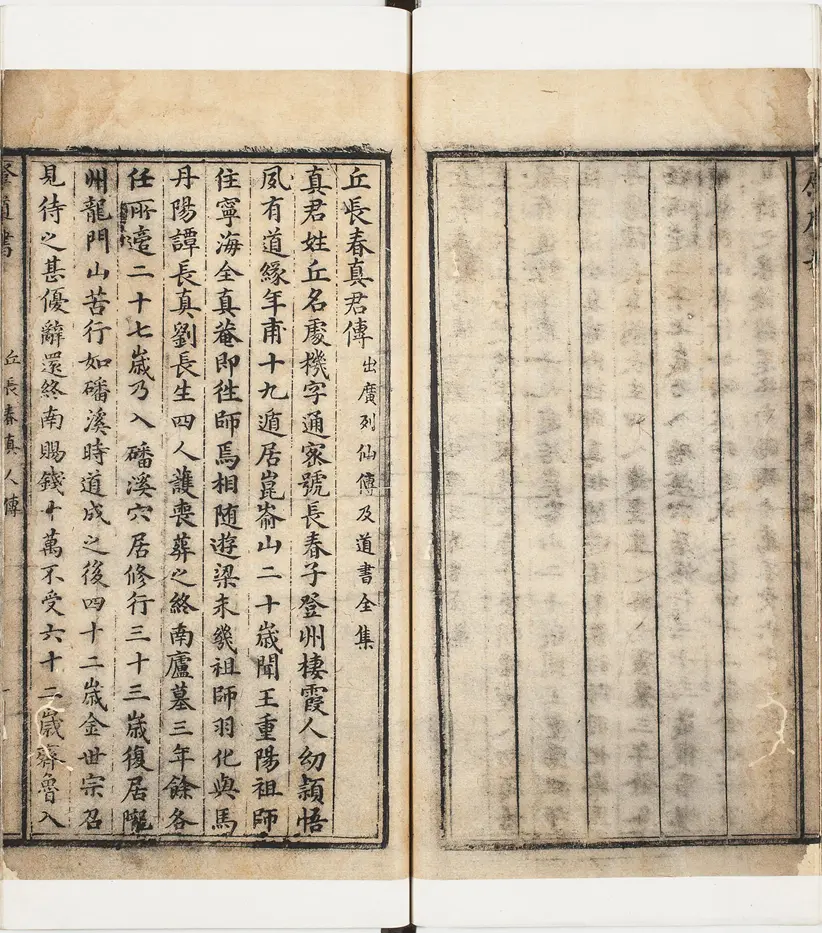 丘長春真君傳 出廣列仙傳及道書全集
真君姓丘名處機字通密號長春子登州棲霞人幼頴悟
夙有道緣年甫十九遁居崑崙山二十歲聞王重陽祖師
住寧海全真菴即徃師焉相随遊梁未幾祖師羽化與馬
丹陽譚長真劉長生四人護喪葬之終南廬墓三年餘各
任所適二十七歲乃入磻溪穴居修行三十三歲復居隴
州龍門山苦行如磻溪時道成之後四十二歲金世宗召
見待之甚優辭還終南賜錢十萬不受六十二歲齊魯入
道書
丘長春真人傳
一